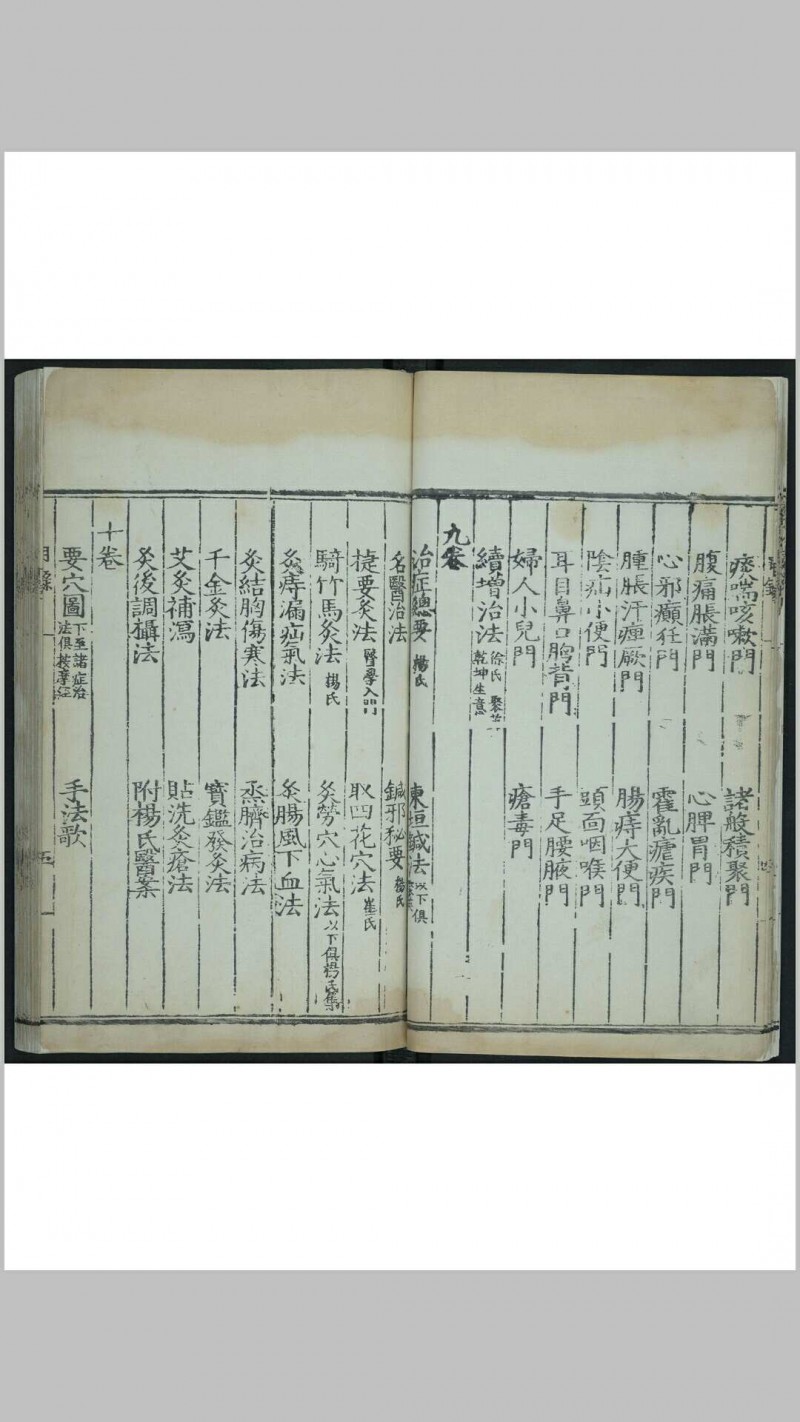 痰喘咳嗽門 諸般積聚門
腹痛脹滿門 心脾胃門
心邪癲狂門 霍亂瘧疾門
腫脹汗痺厥門 腸痔大便門
陰疝小便門 頭面咽喉門
耳目鼻口門 手足腰腋門
婦人小兒門 瘡毒門
續增治法 徐氏 乾坤生意
九卷
治症總要 楊氏 東垣鍼法 以下俱
名醫治法 鍼邪秘要 楊氏
捷要灸法 醫學入門 取四花穴法 崔氏
騎竹馬灸法 楊氏 灸勞穴心氣法 以下俱楊氏集
灸痔漏疝氣法 灸腸風下血法
灸結胸傷寒法 烝臍治病法
千金灸法 寶鑑發灸法
艾灸補瀉 貼洗灸瘡法
灸後調攝法 附楊氏醫案
十卷
要穴圖 下至諸症治法俱按摩經 手法歌
目錄